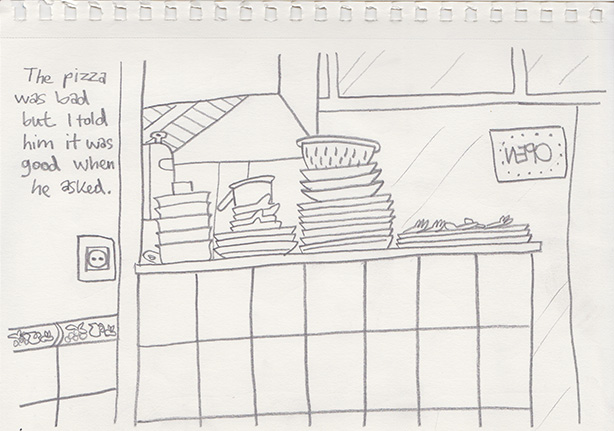 The pizza
was bad
but I told
him it was
good when
he asked.
OPEN